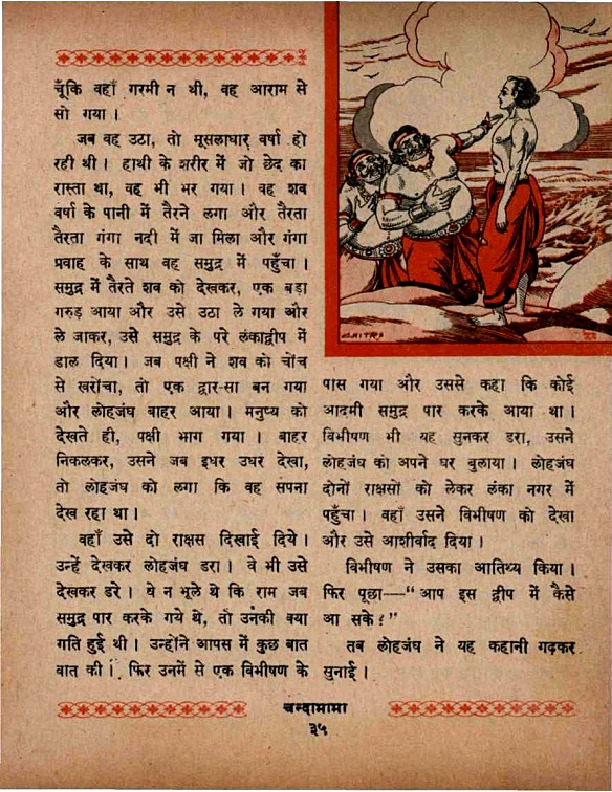 चूँकि वहाँ गरमी न थी, वह आराम से
सो गया ।
जब वह उठा, तो मूसलाधार वर्षा हो
रही थी । हाथी के शरीर में जो छेद का
रास्ता था, वह भी भर गया । वह शव
वर्षा के पानी में तैरने लगा और तैरता
तैरता गंगा नदी में जा मिला और गंगा
प्रवाह के साथ वह समुद्र में पहुँचा ।
समुद्र में तैरते शव को देखकर, एक बड़ा
गरुड़ आया और उसे उठा ले गया और
ले जाकर, उसे समुद्र के परे लंकाद्वीप में
डाल दिया । जब पक्षी ने शव को चोंच
से खरोंचा, तो एक द्वार-सा बन गया
और लोहजंघ बाहर आया । मनुष्य को
देखते ही, पक्षी भाग गया । बाहर
निकलकर, उसने जब इधर उधर देखा,
तो लोहजंघ को लगा कि वह सपना
देख रहा था ।
वहाँ उसे दो राक्षस दिखाई दिये ।
उन्हें देखकर लोहजंघ डरा । वे भी उसे
देखकर डरे । वे न भूले थे कि राम जब
समुद्र पार करके गये थे, तो उनकी क्या
गति हुई थी । उन्होंने आपस में कुछ बात
बात की । फिर उनमें से एक विभीषण के
पास गया और उससे कहा कि कोई
आदमी समुद्र पार करके आया था ।
विभीषण भी यह सुनकर डरा, उसने
लोहजंघ को अपने घर बुलाया । लोहजंघ
दोनों राक्षसों को लेकर लंका नगर में
पहुँचा । वहाँ उसने विभीषण को देखा
और उसे आशीर्वाद दिया ।
विभीषण ने उसका आतिथ्य किया ।
फिर पूछा—"आप इस द्वीप में कैसे
आ सके?"
तब लोहजंघ ने यह कहानी गढ़कर
सुनाई ।
चन्दामामा
३५